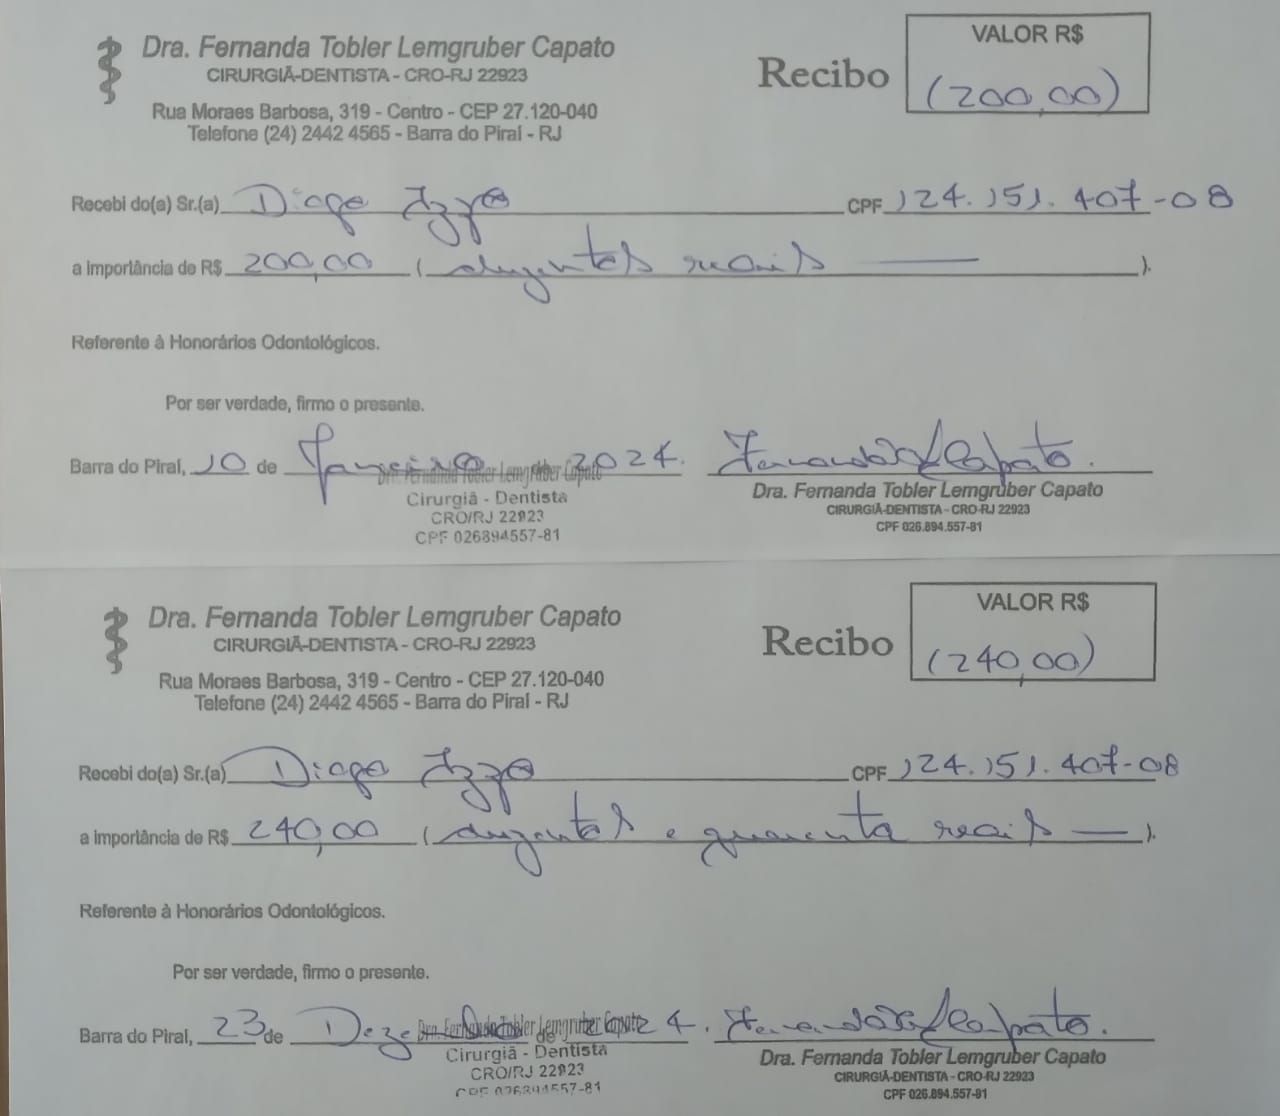 Dra. Fernanda Tobler Lemgruber Capato
CIRURGIÃ-DENTISTA - CRO-RJ 22923
Rua Moraes Barbosa, 319 - Centro - CEP 27.120-040
Telefone (24) 2442 4565 - Barra do Piraí - RJ
Recibo
VALOR R$
(200,00)
Recebi do(a) Sr.(a) Diogo Izzo CPF 124.151.407-08
a importância de R$ 200,00 (duzentos reais ).
Referente à Honorários Odontológicos.
Por ser verdade, firmo o presente.
Barra do Piraí, 10 de Janeiro de 2024.
Dra. Fernanda Tobler Lemgruber Capato
Cirurgiã - Dentista
CRO/RJ 22923
CPF 026894557-81
Fernanda Capato.
Dra. Fernanda Tobler Lemgruber Capato
CIRURGIÃ-DENTISTA - CRO-RJ 22923
CPF 026.894.557-81
Dra. Fernanda Tobler Lemgruber Capato
CIRURGIÃ-DENTISTA - CRO-RJ 22923
Rua Moraes Barbosa, 319 - Centro - CEP 27.120-040
Telefone (24) 2442 4565 - Barra do Piraí - RJ
Recibo
VALOR R$
(240,00)
Recebi do(a) Sr.(a) Diogo Izzo CPF 124.151.407-08
a importância de R$ 240,00 (duzentos e quarenta reais ).
Referente à Honorários Odontológicos.
Por ser verdade, firmo o presente.
Barra do Piraí, 23 de Dezembro de 24.
Dra. Fernanda Tobler Lemgruber Capato
Cirurgiã - Dentista
CRO/RJ 22923
CPF 026894557-81
Fernanda Capato.
Dra. Fernanda Tobler Lemgruber Capato
CIRURGIÃ-DENTISTA - CRO-RJ 22923
CPF 026.894.557-81